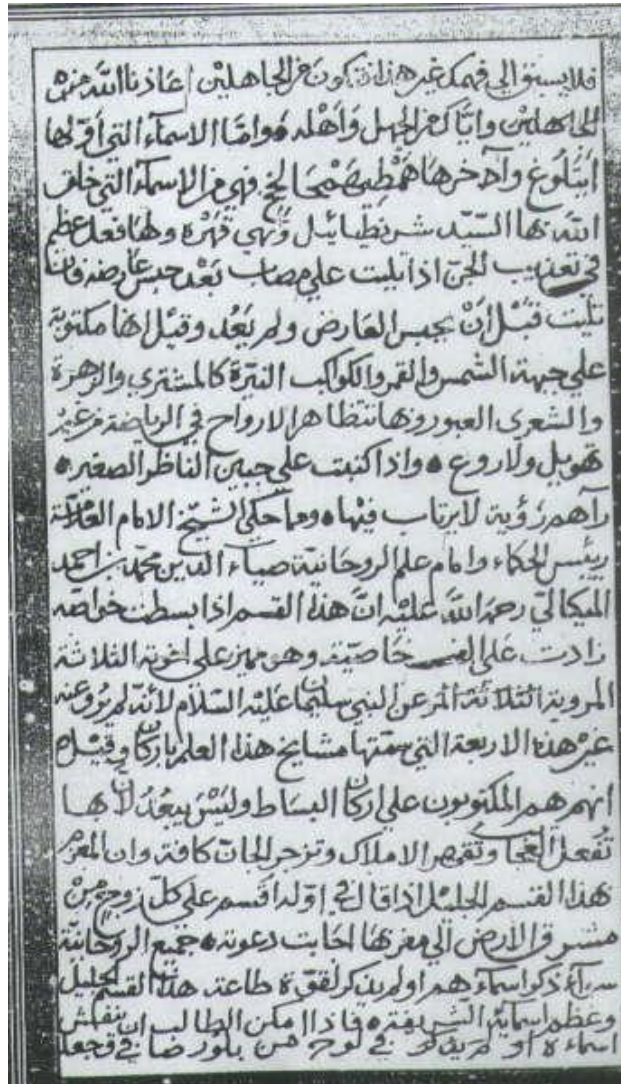 فلا يسبق الي فهمك غير هذا فتكون من الجاهلين اعاذنا الله من
الجاهلين واياك من الجهل وَاَهْله ٥ وامّا الاسمآء التي اوّلها
وآخرها فهي من الاسمآء التي خلق
الله بها السّيّد وهي قهره ولها فعل عظيم
في تعذيب الجنّ اذا تليت علي مصاب بَعْد حبس عارضه فان
تليت قَبْل اَنْ يحبس العَارض ولم يَعُد وقيل انها مكتوبة
علي جبهة الشمس والقمر والكواكب النيّرة كالمشتري والزهرة
والشعري العبور وبها تتظاهر الارواح في الرياضة من غير
تهويل ولا روع ٥ واذا كتبت علي جبين الناظر الصغير ٥
رآهم رُؤية لا يرتاب فيها ٥ ومما حكي الشيخ الامام العلامة
رييس الحكماء وامام علم الروحانيّة ضياء الدين محمّد بن احمد
الميكالي رحمة الله عَلَيْه انّ هذا القسم اذا بسطت خواصّه
زادت عَلي خاصيّة وهو مميز علي اخوته الثلاثة
المروية الثلاثة عن النبي سليمان عَليْه السّلام لانّه لم يُرو عنه
غيْر هذه الاربعة التي سمّتها مشايخ هذا العلم باركان وقيْل
انهم هم المكتوبون علي اركان البسَاط وليْسَ ببعُد لانها
تُفعل العجايب وتقهر الاملاك وتزجر الجانّ كافة وان المعزم
هذا القسم الجليل اذا قال في اوّله اقسم علي كلّ زوج مِنْ
مشرق الارض الي مغربها اجابت دعوته ٥ جميع الروحانيّة
سوآء ذكر اسمآءهم او لم يذكر لقوّة طاعة هذا القسم الجليل
وعظم اسمايه الشريفة ٥ فاذا امكن الطالب ان ينقش
اسماءه او في لوح من